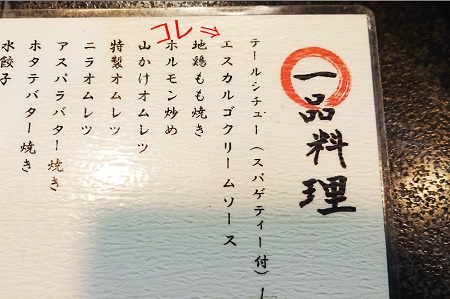 一品料理
テールシチュー(スパゲティー付)
コレ⇒
エスカルゴクリームソース
地鶏もも焼き
ホルモン炒め
山かけオムレツ
特製オムレツ
ニラオムレツ
アスパラバター焼き
ホタテバター焼き
水餃子